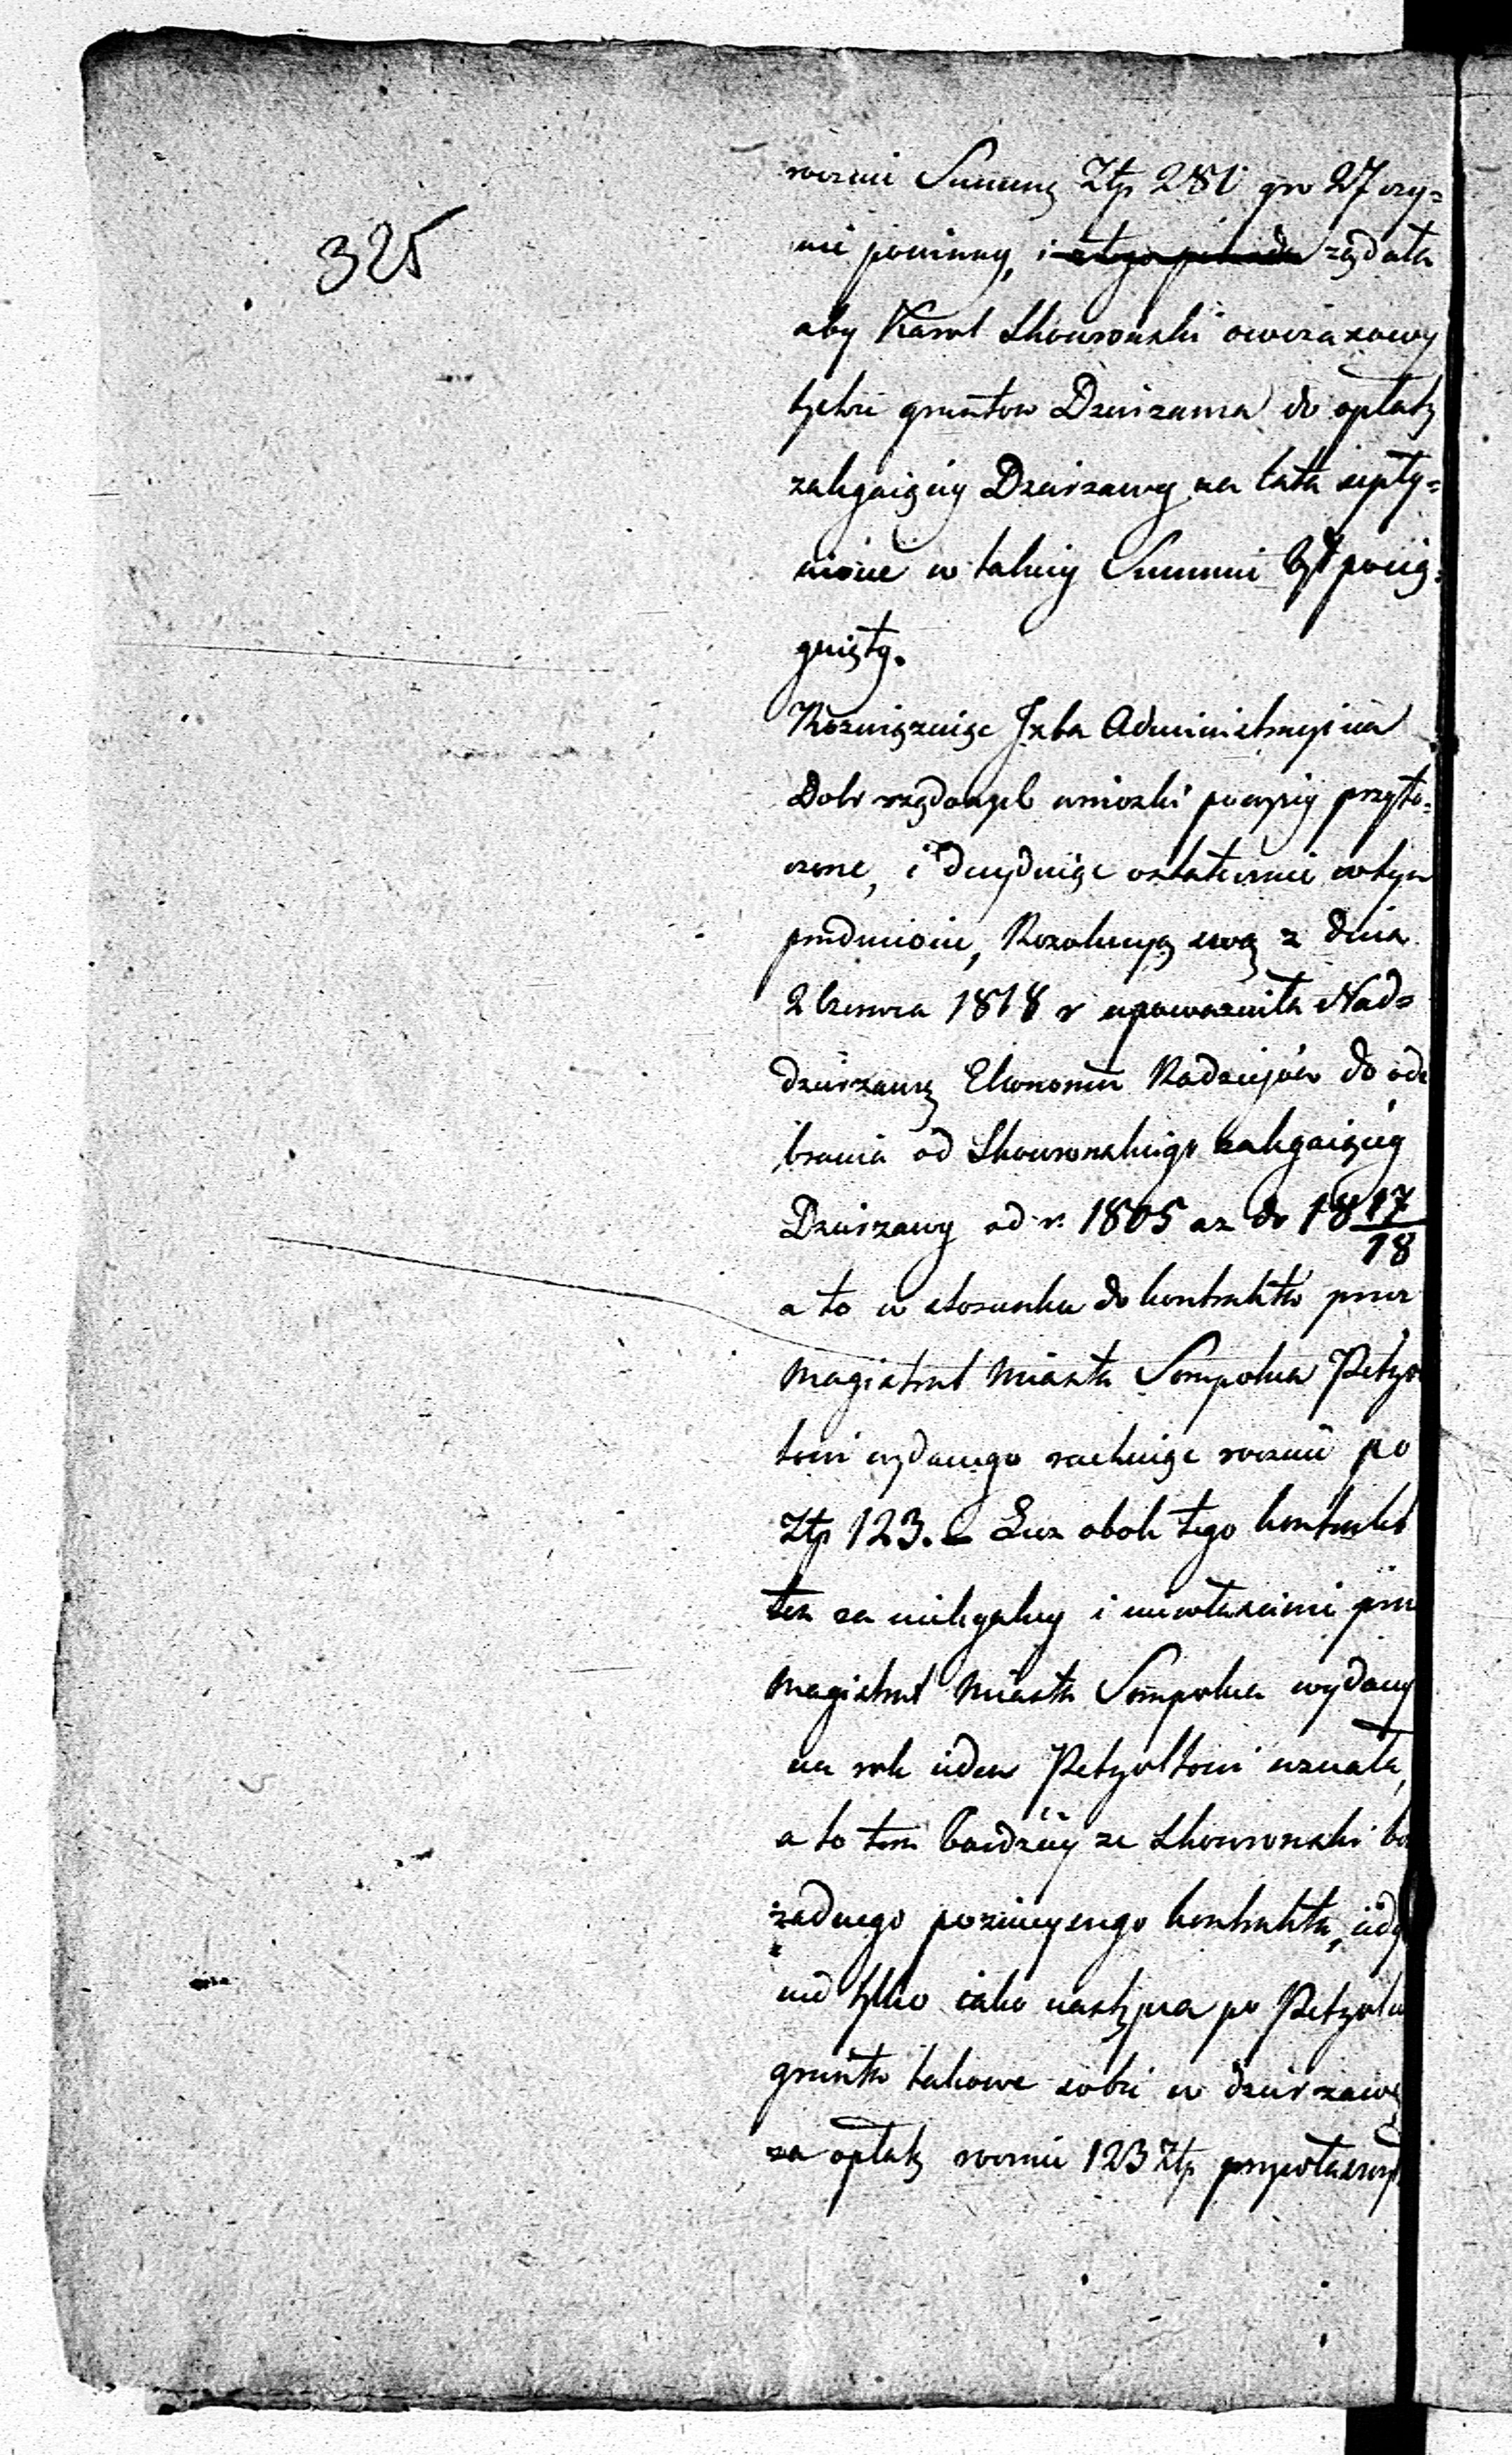 325
rocznie Summę Ztp 281 gr 27 czy=
nić powinny, i z tego powodu żądała
aby Karol Skowronski owczasowy
tychże gruntow Dzierzawca do opłaty
zaległaiącey Dzierzawy za lata upły=
nione w takiey Summie był pocią=
gnięty.
Rozwiązuiąc Izba Administracyina
Dobr rządowych wnioski powyżey przyto=
czone, i decyduiąc ostatecznie wtym
przedmiocie, Rezolucyą swą z dnia
2 Czerwca 1818 r upoważniła Nad=
dzierzawcę Ekonomii Radziejów do ode
brania od Skowronskiego zalegaiącey
Dzierzawy od r. 1805 az do 18 17/18
a to w stosunku do kontraktu przez
Magistrat Miasta Sompolna Petzol
towi wydanego rachuiąc rocznie po
Ztp 123. – Lecz obok tego kontrakt
ten za nielegalny i niewłaściwie prze
Magistrat Miasta Sompolna wydany
na rok ieden Petzoltowi uznała,
a to tem bardziey ze Skowronski bez
żadnego pozniejszego kontraktu, iedy
nie tylko iako następca po Petzolu
grunta takowe sobie w dzierzawę
za opłatą rocznie 123 Ztp przywłaszczył